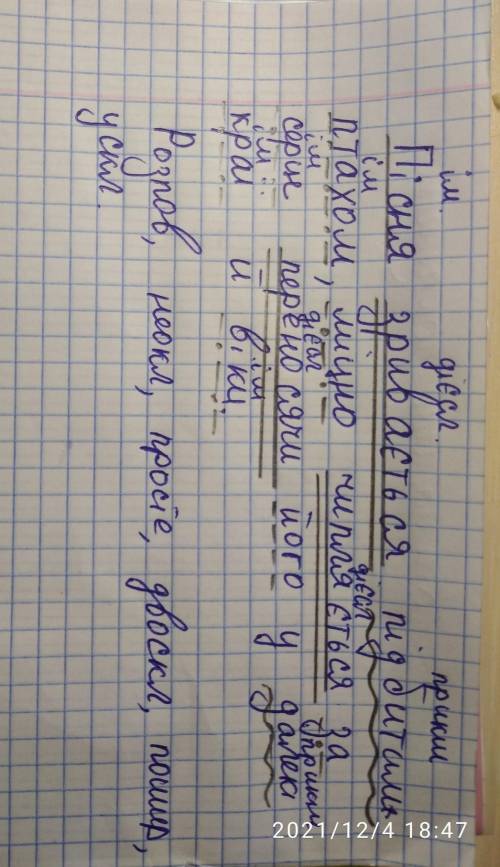 ім. дієсл. прикм
Пісня зривається підбитим
ім дієсл
птахом, міцно чипляється за
ім дієсл прикм
серце переносячи його у далекі
ім. ім
краї й віки.
Розпов, неокл, просте, двоскл, пошир,
ускл.
2021/12/4 18:47